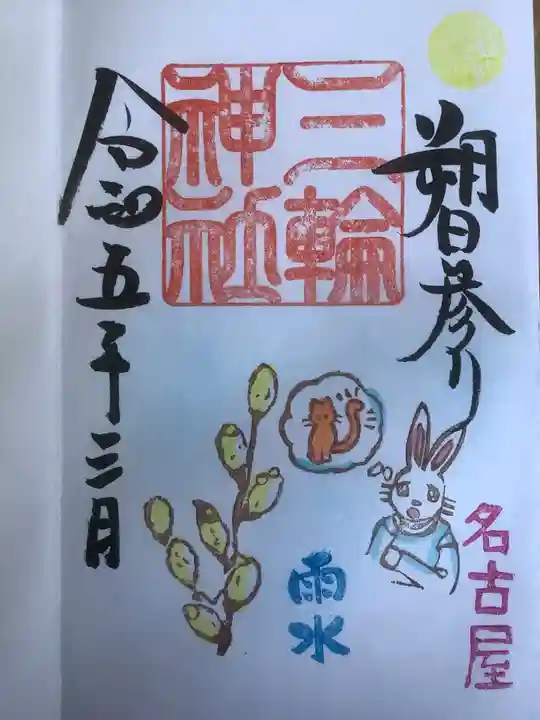 朔日参り
三輪
神社
令和五年三月
雨水
名古屋